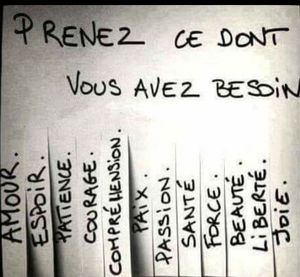 PRENEZ CE DONT
VOUS AVEZ BESOIN
AMOUR.
ESPOIR.
PATIENCE.
COURAGE.
COMPRÉHENSION.
PAIX.
PASSION.
SANTÉ
FORCE.
BEAUTÉ.
LIBERTÉ.
JOIE.